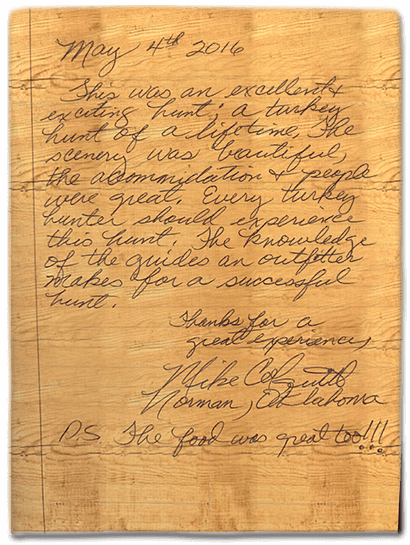 May 4th 2016
This was an excellent &
exciting hunt; a turkey
hunt of a lifetime. The
scenery was beautiful,
the accommydation & people
were great. Every turkey
hunter should experience
this hunt. The knowledge
of the guides an outfitter
makes for a successful
hunt.
Thanks for a
great experience,
Mike
Norman, Oklahoma
P.S. The food was great too!!!